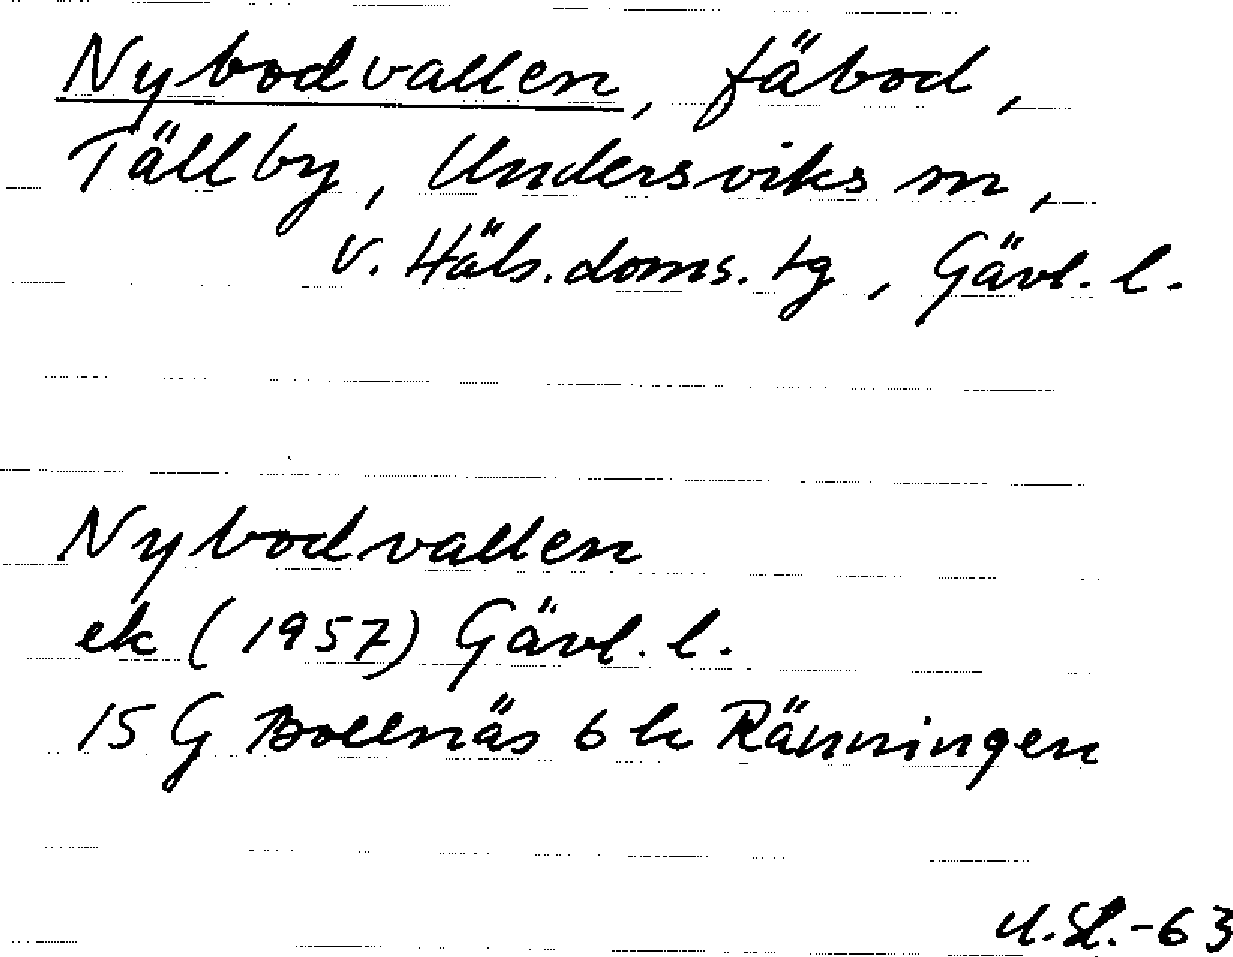 Nybodvallen, fäbod,
Tällby, Undersviks sn,
v. Häls. doms. tg, Gävl. l.
Nybodvallen
ek (1957) Gävl. l.
15 G Bollnäs 6 h Ränningen
-63